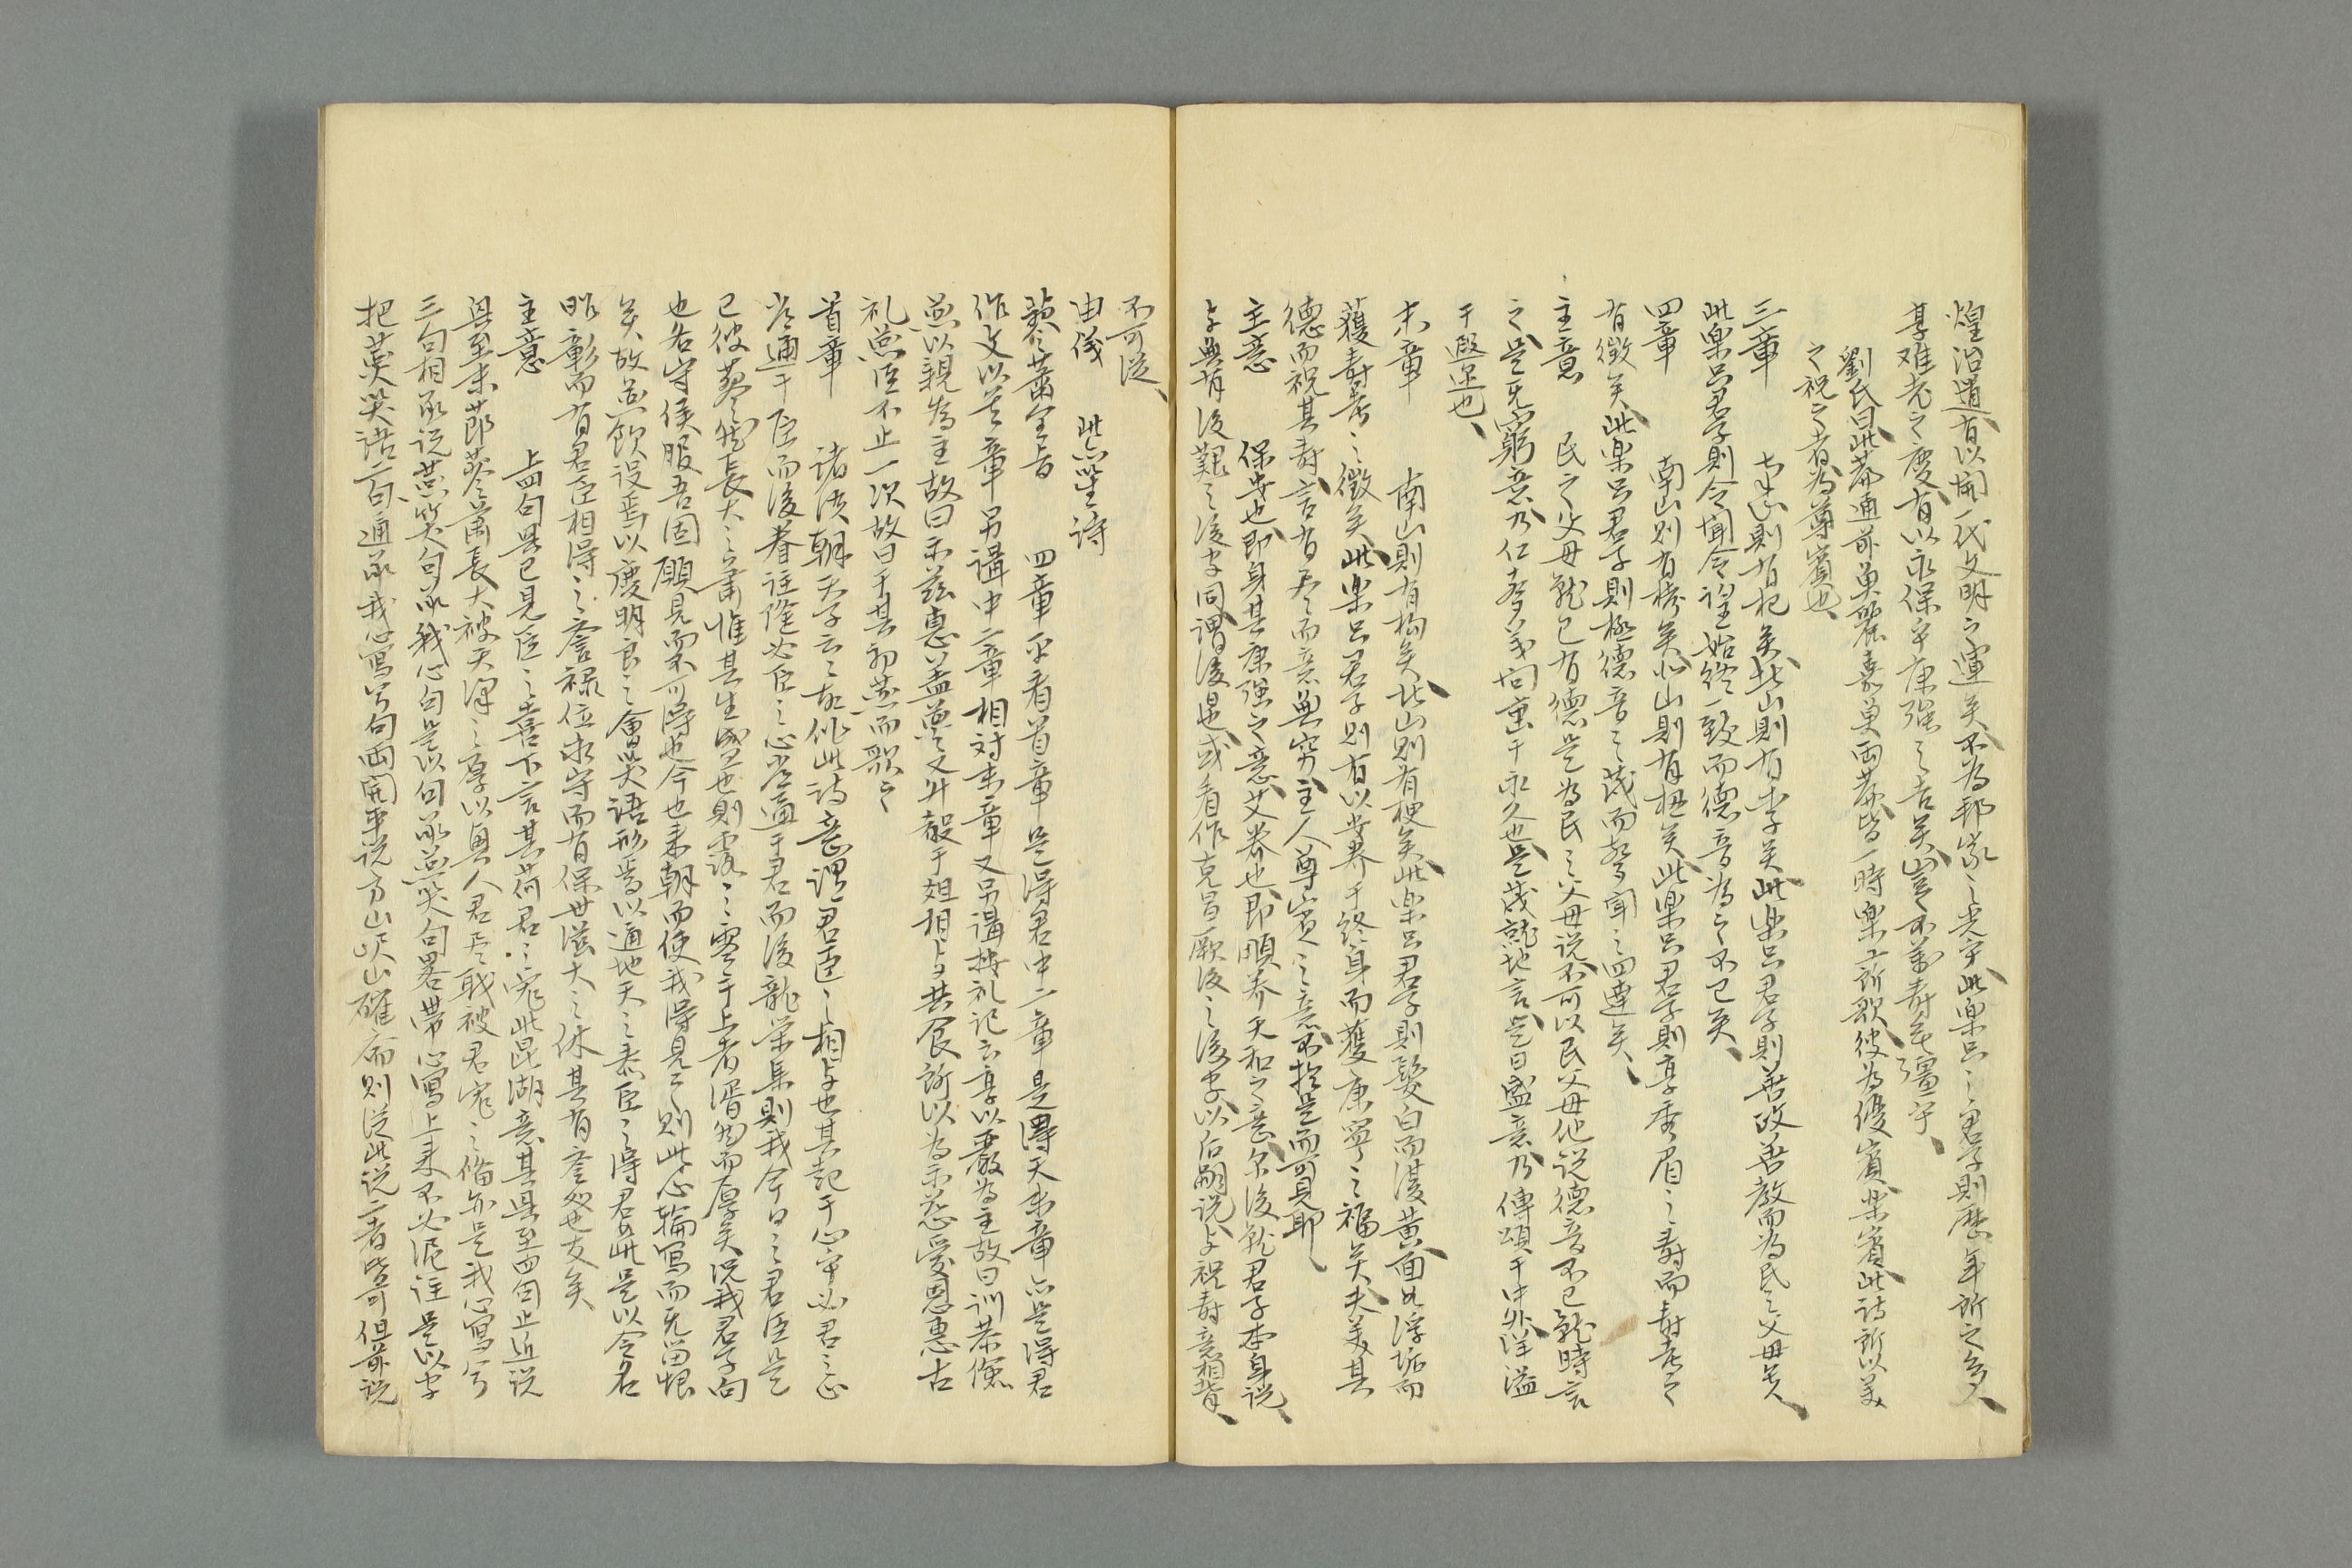 煌治道、有以開一代文明之運矣、不為邦家之光乎、此樂只之君子則歷年所之多、
享难老之慶、有以永保乎康强之吉矣、豈不萬壽无疆乎、
劉氏曰、此葊通前魚麗嘉魚兩葊、皆一時樂工所歌、彼為優賓樂賓、此詩所以美
之祝之者、為尊賓也、
三章　南山則有杞矣、北山則有李矣、此樂只君子則善政善教而為民之父母矣、
此樂只君子則令聞令望始終一致而德音為之不已矣、
四章　南山則有栲矣、北山則有杻矣、此樂只君子則享秀眉之壽而壽考之
有徵矣、此樂只君子則極德音之茂而聲聞之四達矣、
主意　民之父母就已有德、是為民之父母説、不可以民父母他説、德音不已就時言
之、是无窮意、乃仁孝義問重于永久也、是茂就地言、是日盛意、乃傳頌于中外、洋溢
于遐迩也、
末章　南山則有枸矣、北山則有楰矣、此樂只君子則髮白而復黄、面如浮垢而
獲壽考之徵矣、此樂只君子則有以安养于終身而獲康寧之福矣、夫美其
德而祝其壽、言有尽而意無窮、主人尊賓之意不於是而可見耶、
主意　保安也、即身其康强之意、艾养也、即頤养天和之意、尔後就君子本身説、
与無有後艱之後字同、謂後日也、或看作克昌厥後之後字、以后嗣説、与祝壽意相背、
不可從、
由儀　此亦笙詩
蓼蓼蕭全旨　四章平看、首章是得君、中二章是得天、末章亦是得君
作文以首章另講、中二章相对、末章又另講、按礼記云、享以嚴為主、故曰訓恭儉
燕以親為主、故曰示慈惠、盖燕又升殽于俎、相与共食、所以為示慈、愛恩惠、古
礼燕臣不止一次、故曰于其初燕而歌之
首章　諸侯朝天子云云、故作此詩、意謂君臣之相与也、其起于心乎、必君之心
者通于臣而後眷注隆、必臣之心者通于君而後龍榮集、則我今日之君臣是
已、彼蓼然長大之蕭、惟其生盛也、則露之零于上者湑然而厚矣、况我君子向
也各守侯服、吾固願見而不可得也、今也来朝而使我得見之、則此心輸寫而无留恨
矣、故燕飲設焉、以慶明良之會、笑語形焉、以通地天之泰、臣之得君如此、是以令名
昭彰而有君臣相得之譽、禄位永守而有保世滋大之休、其有譽処也友矣
主意　上四句是已見臣之喜、下言其荷君之寵、此昆湖意、其是至四句止近説
（
與至末節蓼蕭長大、被天澤之厚、以與人君尽職、被君寵之偹、亦是我心寫兮
三句相承説、燕笑句承我心句、是以句承燕笑句、畧帶心寫上来、不必泥註是以字
把燕笑語二句通承我心寫兮句、兩開平説、方山、岷山、確齋則從此説、二者皆可、但前説